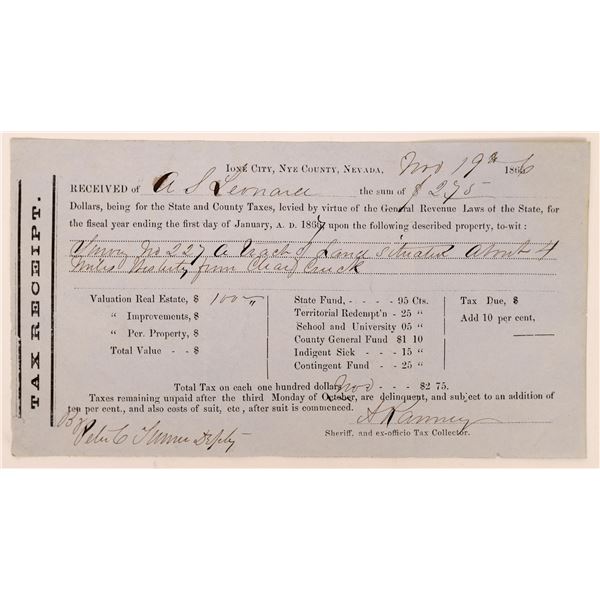 TAX RECEIPT.
Ione City, Nye County, Nevada, Nov 19th 1866
Received of A S Leonard the sum of $ 2.75
Dollars, being for the State and County Taxes, levied by virtue of the General Revenue Laws of the State, for
the fiscal year ending the first day of January, A. D. 1867 upon the following described property, to-wit:
Survey No 227 A Tract of Land situated about 4
miles Westerly from Creek
Valuation Real Estate, $ 100
" Improvements, $
" Per. Property, $
Total Value - - $
State Fund, - - - - 95 Cts.
Territorial Redempt'n - 25 "
School and University 05 "
County General Fund $1 10
Indigent Sick - - - - 15 "
Contingent Fund - - 25 "
Tax Due, $
Add 10 per cent,
Total Tax on each one hundred dollars - - - $2 75.
Nov
Taxes remaining unpaid after the third Monday of October, are delinquent, and subject to an addition of
ten per cent., and also costs of suit, etc., after suit is commenced.
By
Peter C Deputy
Sheriff, and ex-officio Tax Collector.